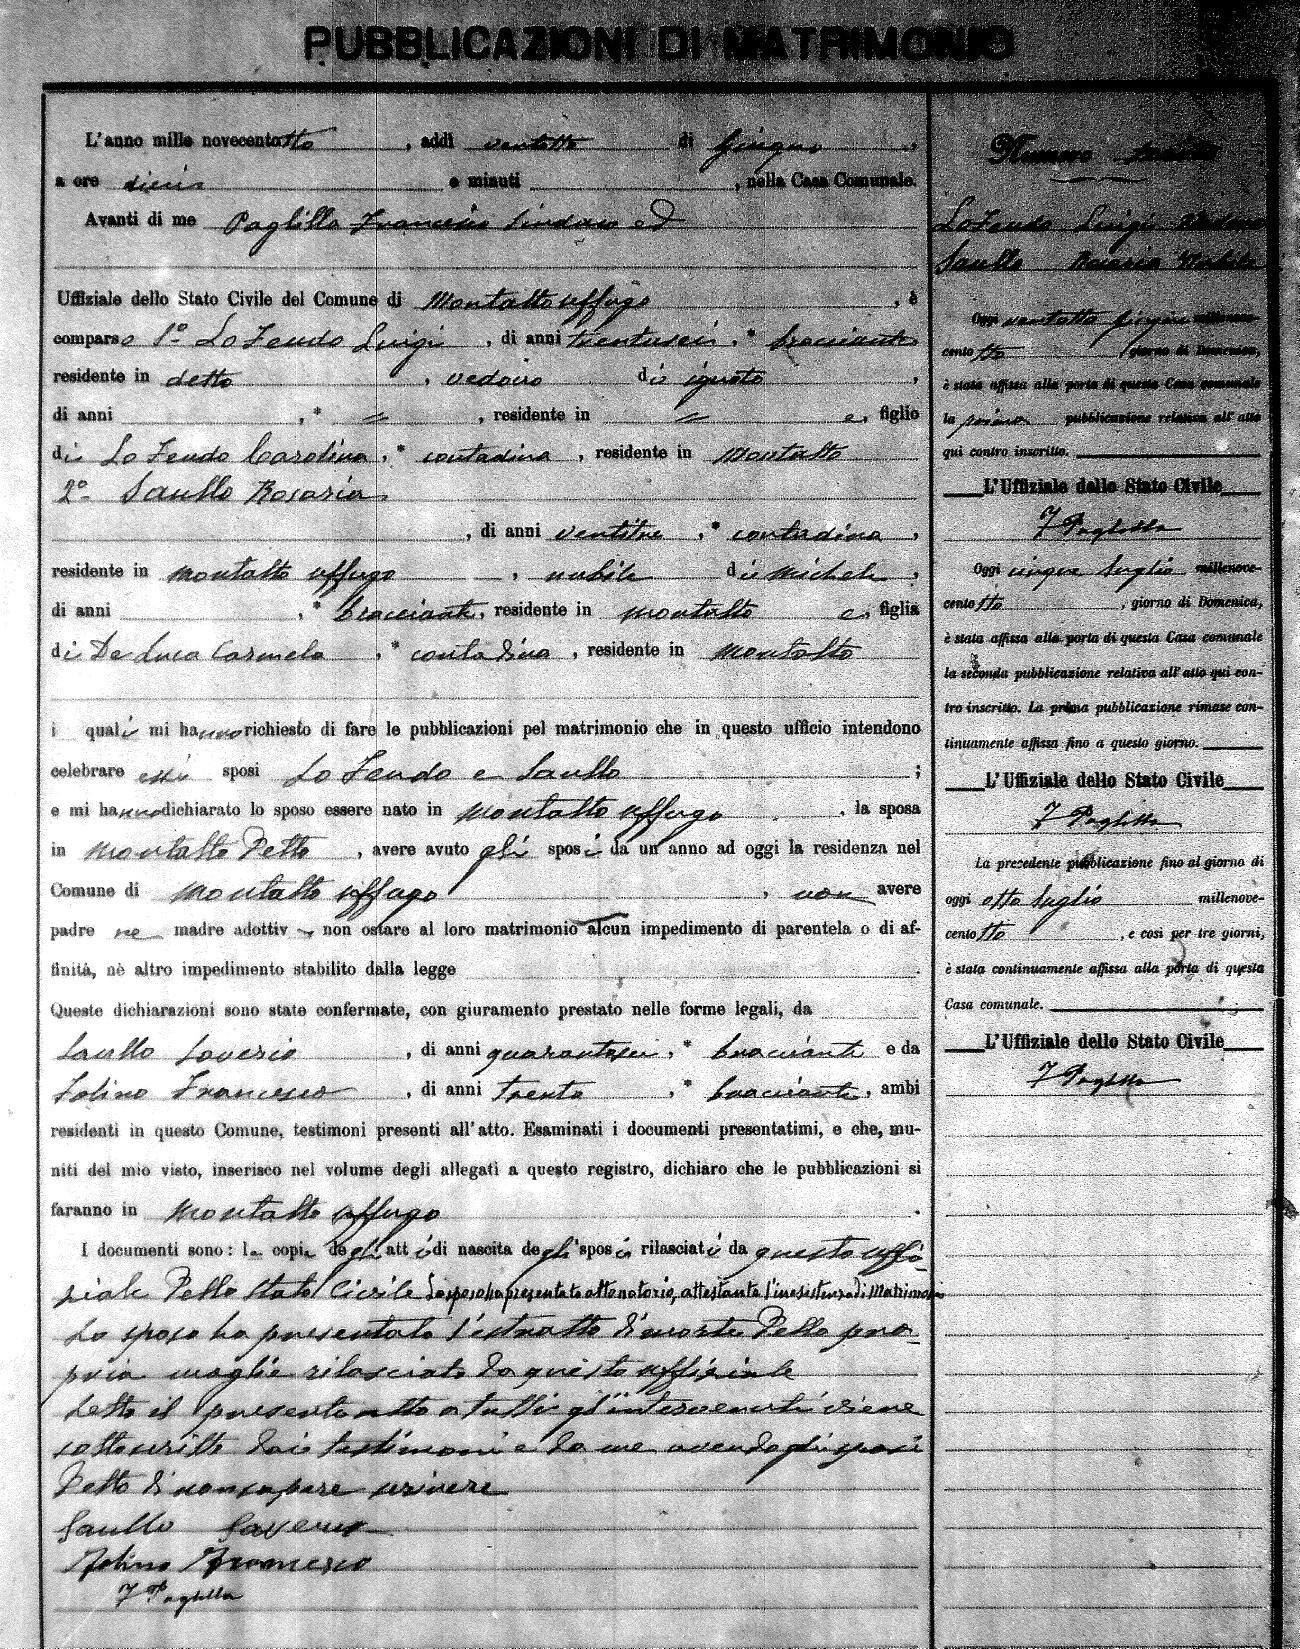 PUBBLICAZIONI DI MATRIMONIO
L'anno mille novecentotto, addì ventotto di Giugno,
a ore dieci e minuti , nella Casa Comunale.
Avanti di me Paglilla Francesco Sindaco ed
Uffiziale dello Stato Civile del Comune di Montalto Uffugo, è
comparso 1º Lo Feudo Luigi, di anni trentasei, * bracciante
residente in detto, vedovo di ignoto,
di anni , * " , residente in " e, figlio
di Lo Feudo Carolina, * contadina, residente in Montalto
2º Saullo Rosaria
, di anni ventitre, * contadina,
residente in Montalto Uffugo, nubile di Michele,
di anni , * bracciante, residente in Montalto e, figlia
di De Luca Carmela, * contadina, residente in Montalto
i quali mi hanno richiesto di fare le pubblicazioni pel matrimonio che in questo ufficio intendono
celebrare essi sposi Lo Feudo e Saullo ;
e mi hanno dichiarato lo sposo essere nato in Montalto Uffugo, la sposa
in Montalto detto, avere avuto gli sposi da un anno ad oggi la residenza nel
Comune di Montalto Uffugo, non avere
padre ne madre adottiv non ostare al loro matrimonio alcun impedimento di parentela o di af-
finità, nè altro impedimento stabilito dalla legge .
Queste dichiarazioni sono state confermate, con giuramento prestato nelle forme legali, da
Saullo Saverio, di anni quarantasei, * bracciante e da
Folino Francesco, di anni trenta, * bracciante, ambi
residenti in questo Comune, testimoni presenti all'atto. Esaminati i documenti presentatimi, e che, mu-
niti del mio visto, inserisco nel volume degli allegati a questo registro, dichiaro che le pubblicazioni si
faranno in Montalto Uffugo .
I documenti sono: le copie degli atti di nascita degli sposi rilasciati da questo uffi-
ziale dello stato civile Lo sposo ha presentato atto notorio, attestante l'inesistenza di Matrimonio
Lo sposo ha presentato l'estratto di morte della pro-
pria moglie rilasciato da questo uffiziale
Letto il presente atto a tutti gl'intervenuti viene
sottoscritto dai testimoni e da me avendo gli sposi
detto di non sapere scrivere
Saullo Saverio
Folino Francesco
F Paglilla
Numero
Lo Feudo Luigi Vedovo
Saullo Rosaria Nubile
Oggi ventotto giugno millenove-
centotto, giorno di Domenica,
è stata affissa alla porta di questa Casa comunale
la prima pubblicazione relativa all'atto
qui contro inscritto.
L'Uffiziale dello Stato Civile
F Paglilla
Oggi cinque luglio millenove-
centotto, giorno di Domenica,
è stata affissa alla porta di questa Casa comunale
la seconda pubblicazione relativa all'atto qui con-
tro inscritto. La prima pubblicazione rimase con-
tinuamente affissa fino a questo giorno.
L'Uffiziale dello Stato Civile
F Paglilla
La precedente pubblicazione fino al giorno di
oggi otto luglio millenove-
centotto, e così per tre giorni,
è stata continuamente affissa alla porta di questa
Casa comunale.
L'Uffiziale dello Stato Civile
F Paglilla